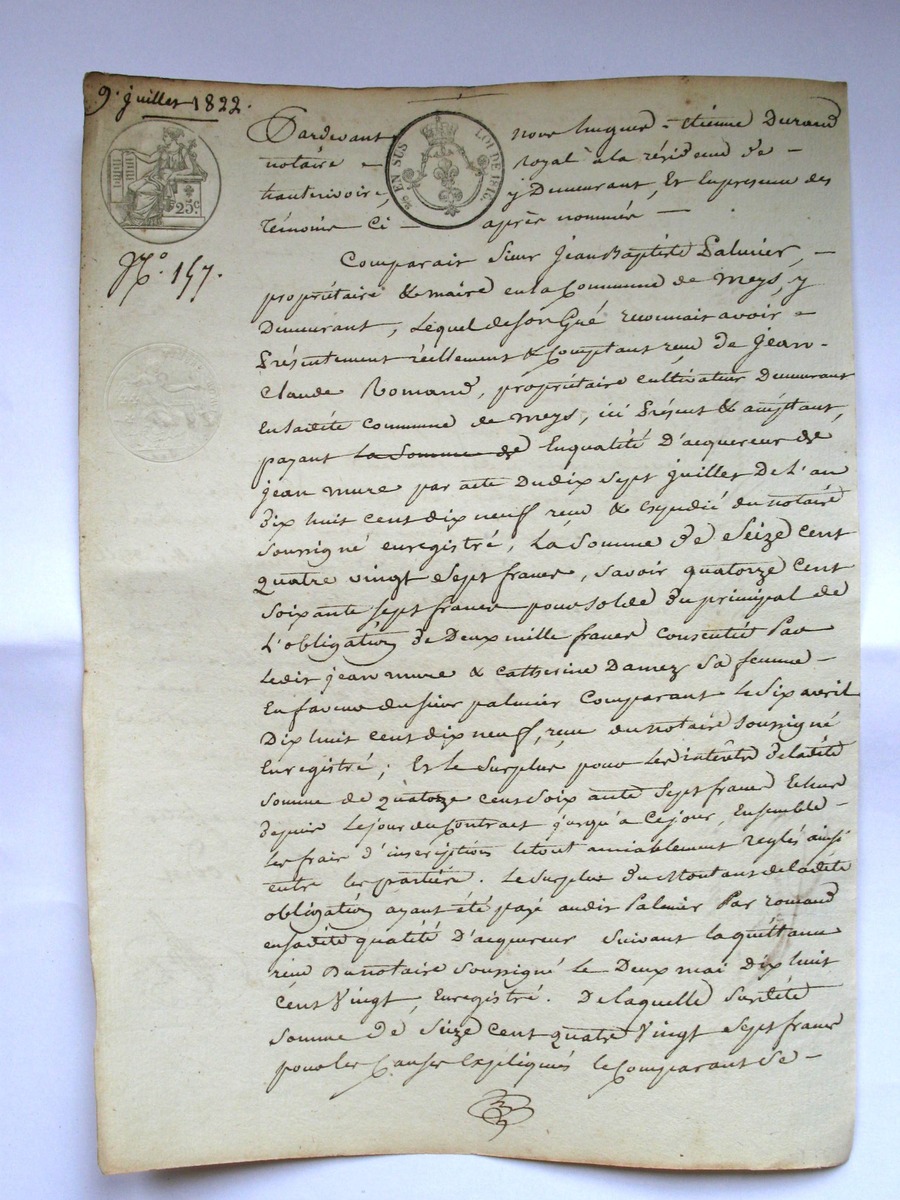 9. juillet 1822.
25.c
EN SUS
LOI DE 1816.
N.o 157.
Pardevant nous hugues-étienne Durand
notaire royal à la résidence de
hauterivoire, y Demeurant, Et En présence des
Témoins Ci - après nommés -
Comparait Sieur Jean Baptiste Palmier, -
propriétaire & maire en la Commune de meys, y
Demeurant, Lequel de son Gré reconnait avoir
Présentement réellement & Comptant reçu de jean-
Claude Romand, propriétaire cultivateur Demeurant
En ladite Commune de meys, ici Présent & acceptant,
payant la Somme de En qualité D'acquereur de
jean mure par acte Du dix sept juillet De L'an
dix huit cent dix neuf reçu & expédié du notaire
soussigné enregistré, La Somme de Seize cent
quatre vingt Sept francs, savoir quatorze cent
soixante sept francs pour solde du principal de
L'obligation de Deux mille francs consentie Par
Ledit jean mure & catherine Damez sa femme -
En faveur du sieur palmier Comparant Le Six avril
Dix huit cent dix neuf, reçue du notaire soussigné
Enregistré; Et le Surplus pour Les intérêts de ladite
somme de quatorze cent soixante Sept francs Echus
depuis Le jour du Contrat jusqu'à Ce jour, Ensemble -
Les frais d'inscription Le tout amiablement reglés ainsi
entre les parties. Le Surplus du Montant de ladite
obligation ayant été payé audit Palmier Par romand
en sadite qualité D'acquereur suivant la quittance
reçue Du notaire soussigné Le Deux mai Dix huit
Cent Vingt, Enregistré. De laquelle Susdite
somme de Seize Cent quatre Vingt Sept francs
pour les Causes Expliquées le Comparant Se -